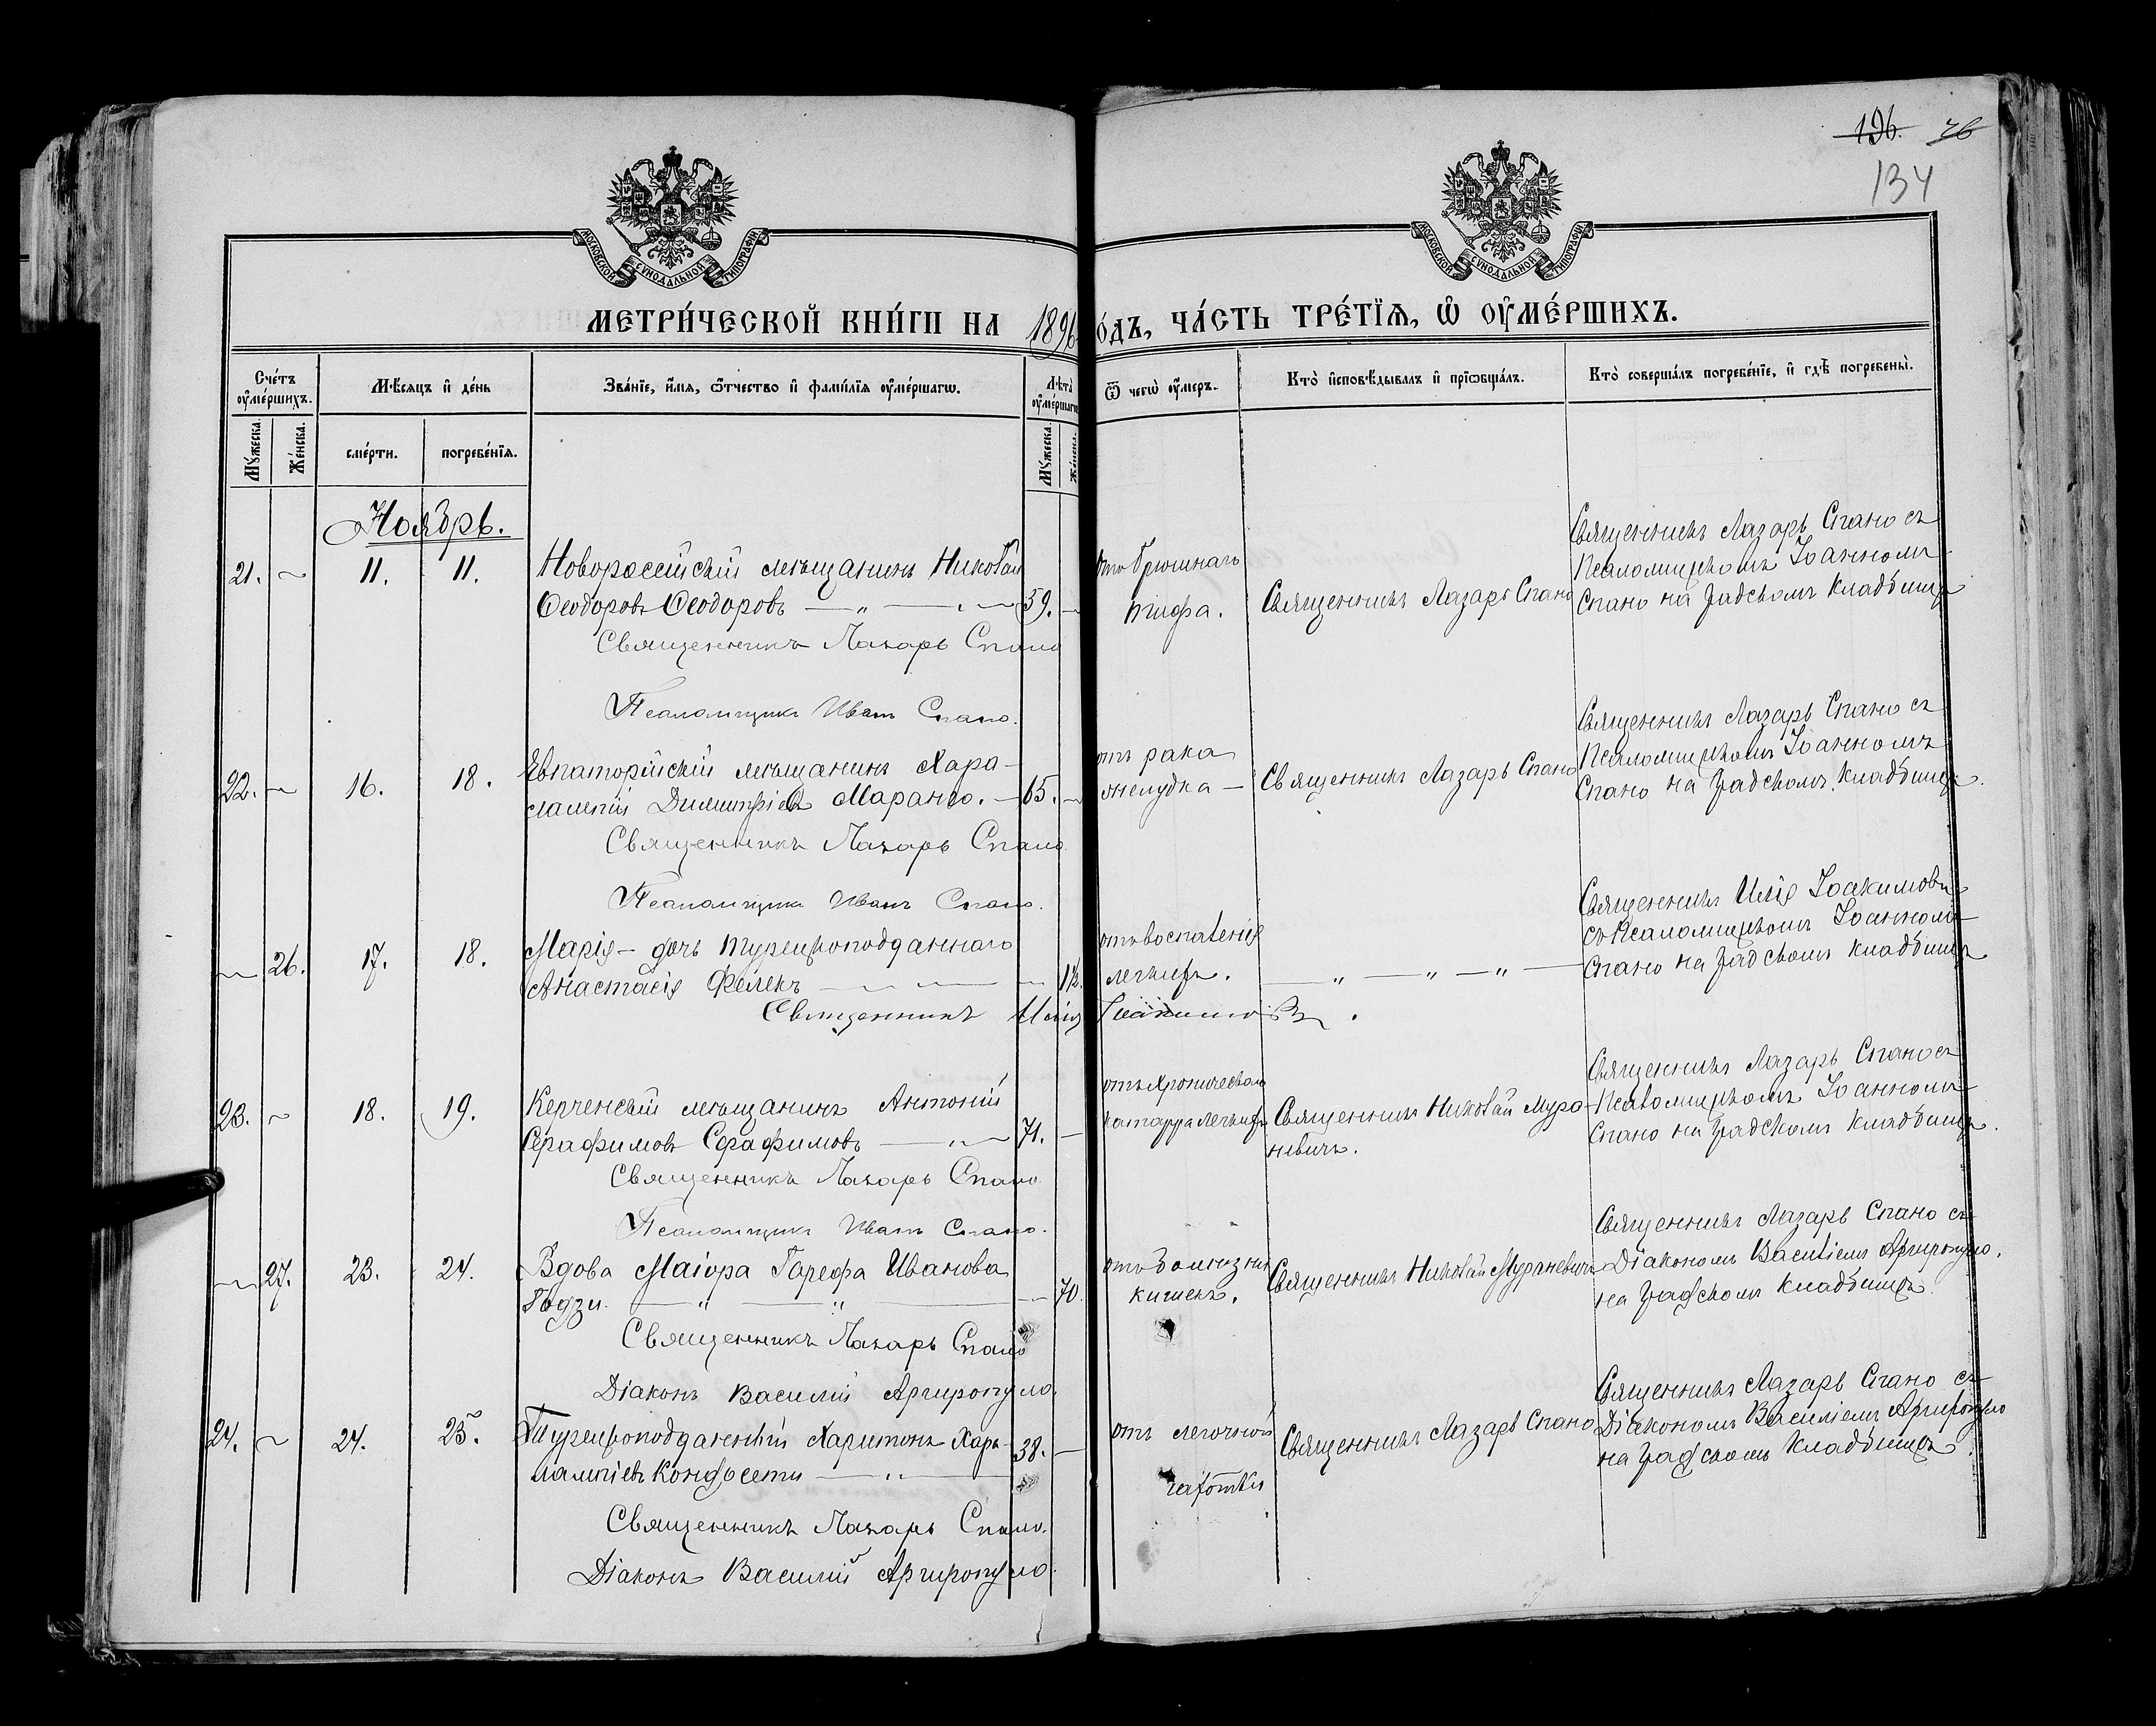 196. 76
134
МОСКОВСКОЙ СУНОДАЛЬНОЙ ТИПОГРАФІИ
МОСКОВСКОЙ СУНОДАЛЬНОЙ ТИПОГРАФІИ
МЕТРИ́ЧЕСКОЙ КНИ́ГИ НА 1896
О́ДЪ, ЧА́СТЬ ТРЕ́ТЇѦ, Ѡ҆ ОУ҆МЕ́РШИХЪ.
Сче́тъ оу҆ме́ршихъ.
Мѣ́сяцъ и҆ де́нь
Зва́нїе, и҆́мѧ, ѻ҆́тчество и҆ фами́лїѧ оу҆ме́ршагѡ.
Лѣта̀ оу҆ме́ршагѡ
Ѿ чегѡ̀ оу҆́меръ.
Кто̀ и҆сповѣ́дывалъ и҆ прїѡбща́лъ.
Кто̀ соверша́лъ погребе́нїе, и҆ гдѣ̀ погребены̀.
Му́жеска.
Же́нска.
сме́рти.
погребе́нїѧ.
Му́жеска.
Же́нска.
Ноябрь.
21. — 11. 11. Новороссійскій мѣщанинъ Николай
Ѳеодоровъ Ѳеодоровъ — 59. —
Священникъ Лазарь Спано
Псаломщикъ Иванъ Спано.
отъ брюшнаго
тифа.
Священникъ Лазарь Спано
Священникъ Лазарь Спано съ
Псаломщикомъ Іоанномъ
Спано на градскомъ кладбищѣ
22. — 16. 18. Евпаторійскій мѣщанинъ Хара-
лампій Димитріевъ Маранго. — 65. —
Священникъ Лазарь Спано
Псаломщикъ Иванъ Спано.
отъ рака
желудка —
Священникъ Лазарь Спано
Священникъ Лазарь Спано съ
Псаломщикомъ Іоанномъ
Спано на градскомъ кладбищѣ.
— 26. 17. 18. Марія — дочь турецкоподданнаго
Анастасія Фелекъ — — 1½.
Священникъ Илія Іоакимовъ.
отъ воспаленія
легкихъ.
— „ — „ — „ —
Священникъ Илія Іоакимовъ
съ Псаломщикомъ Іоанномъ
Спано на градскомъ кладбищѣ
23. — 18. 19. Керченскій мѣщанинъ Антоній
Серафимовъ Серафимовъ — 71. —
Священникъ Лазарь Спано
Псаломщикъ Иванъ Спано.
отъ хроническаго
катарра легкихъ
Священникъ Николай Мура-
невичъ.
Священникъ Лазарь Спано съ
Псаломщикомъ Іоанномъ
Спано на градскомъ кладбищѣ.
— 27. 23. 24. Вдова Маіора Гарефа Иванова
Годзи. — „ — „ — — 70.
Священникъ Лазарь Спано
Діаконъ Василій Аргиропуло.
отъ болѣзни
кишекъ.
Священникъ Николай Мураневичъ
Священникъ Лазарь Спано съ
Діакономъ Василіемъ Аргиропуло.
на градскомъ кладбищѣ.
24. — 24. 25. Турецкоподданный Харитонъ Хара-
лампіевъ — „ — 38. —
Священникъ Лазарь Спано.
Діаконъ Василій Аргиропуло.
отъ легочной
чахотки
Священникъ Лазарь Спано
Священникъ Лазарь Спано съ
Діакономъ Василіемъ Аргиропуло
на градскомъ кладбищѣ.